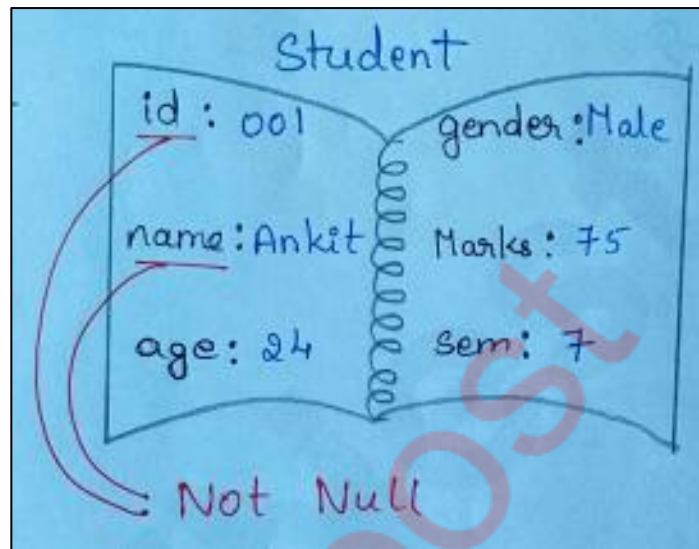 Student
id : 001
name : Ankit
age : 24
gender : Male
Marks : 75
sem : 7
Not Null